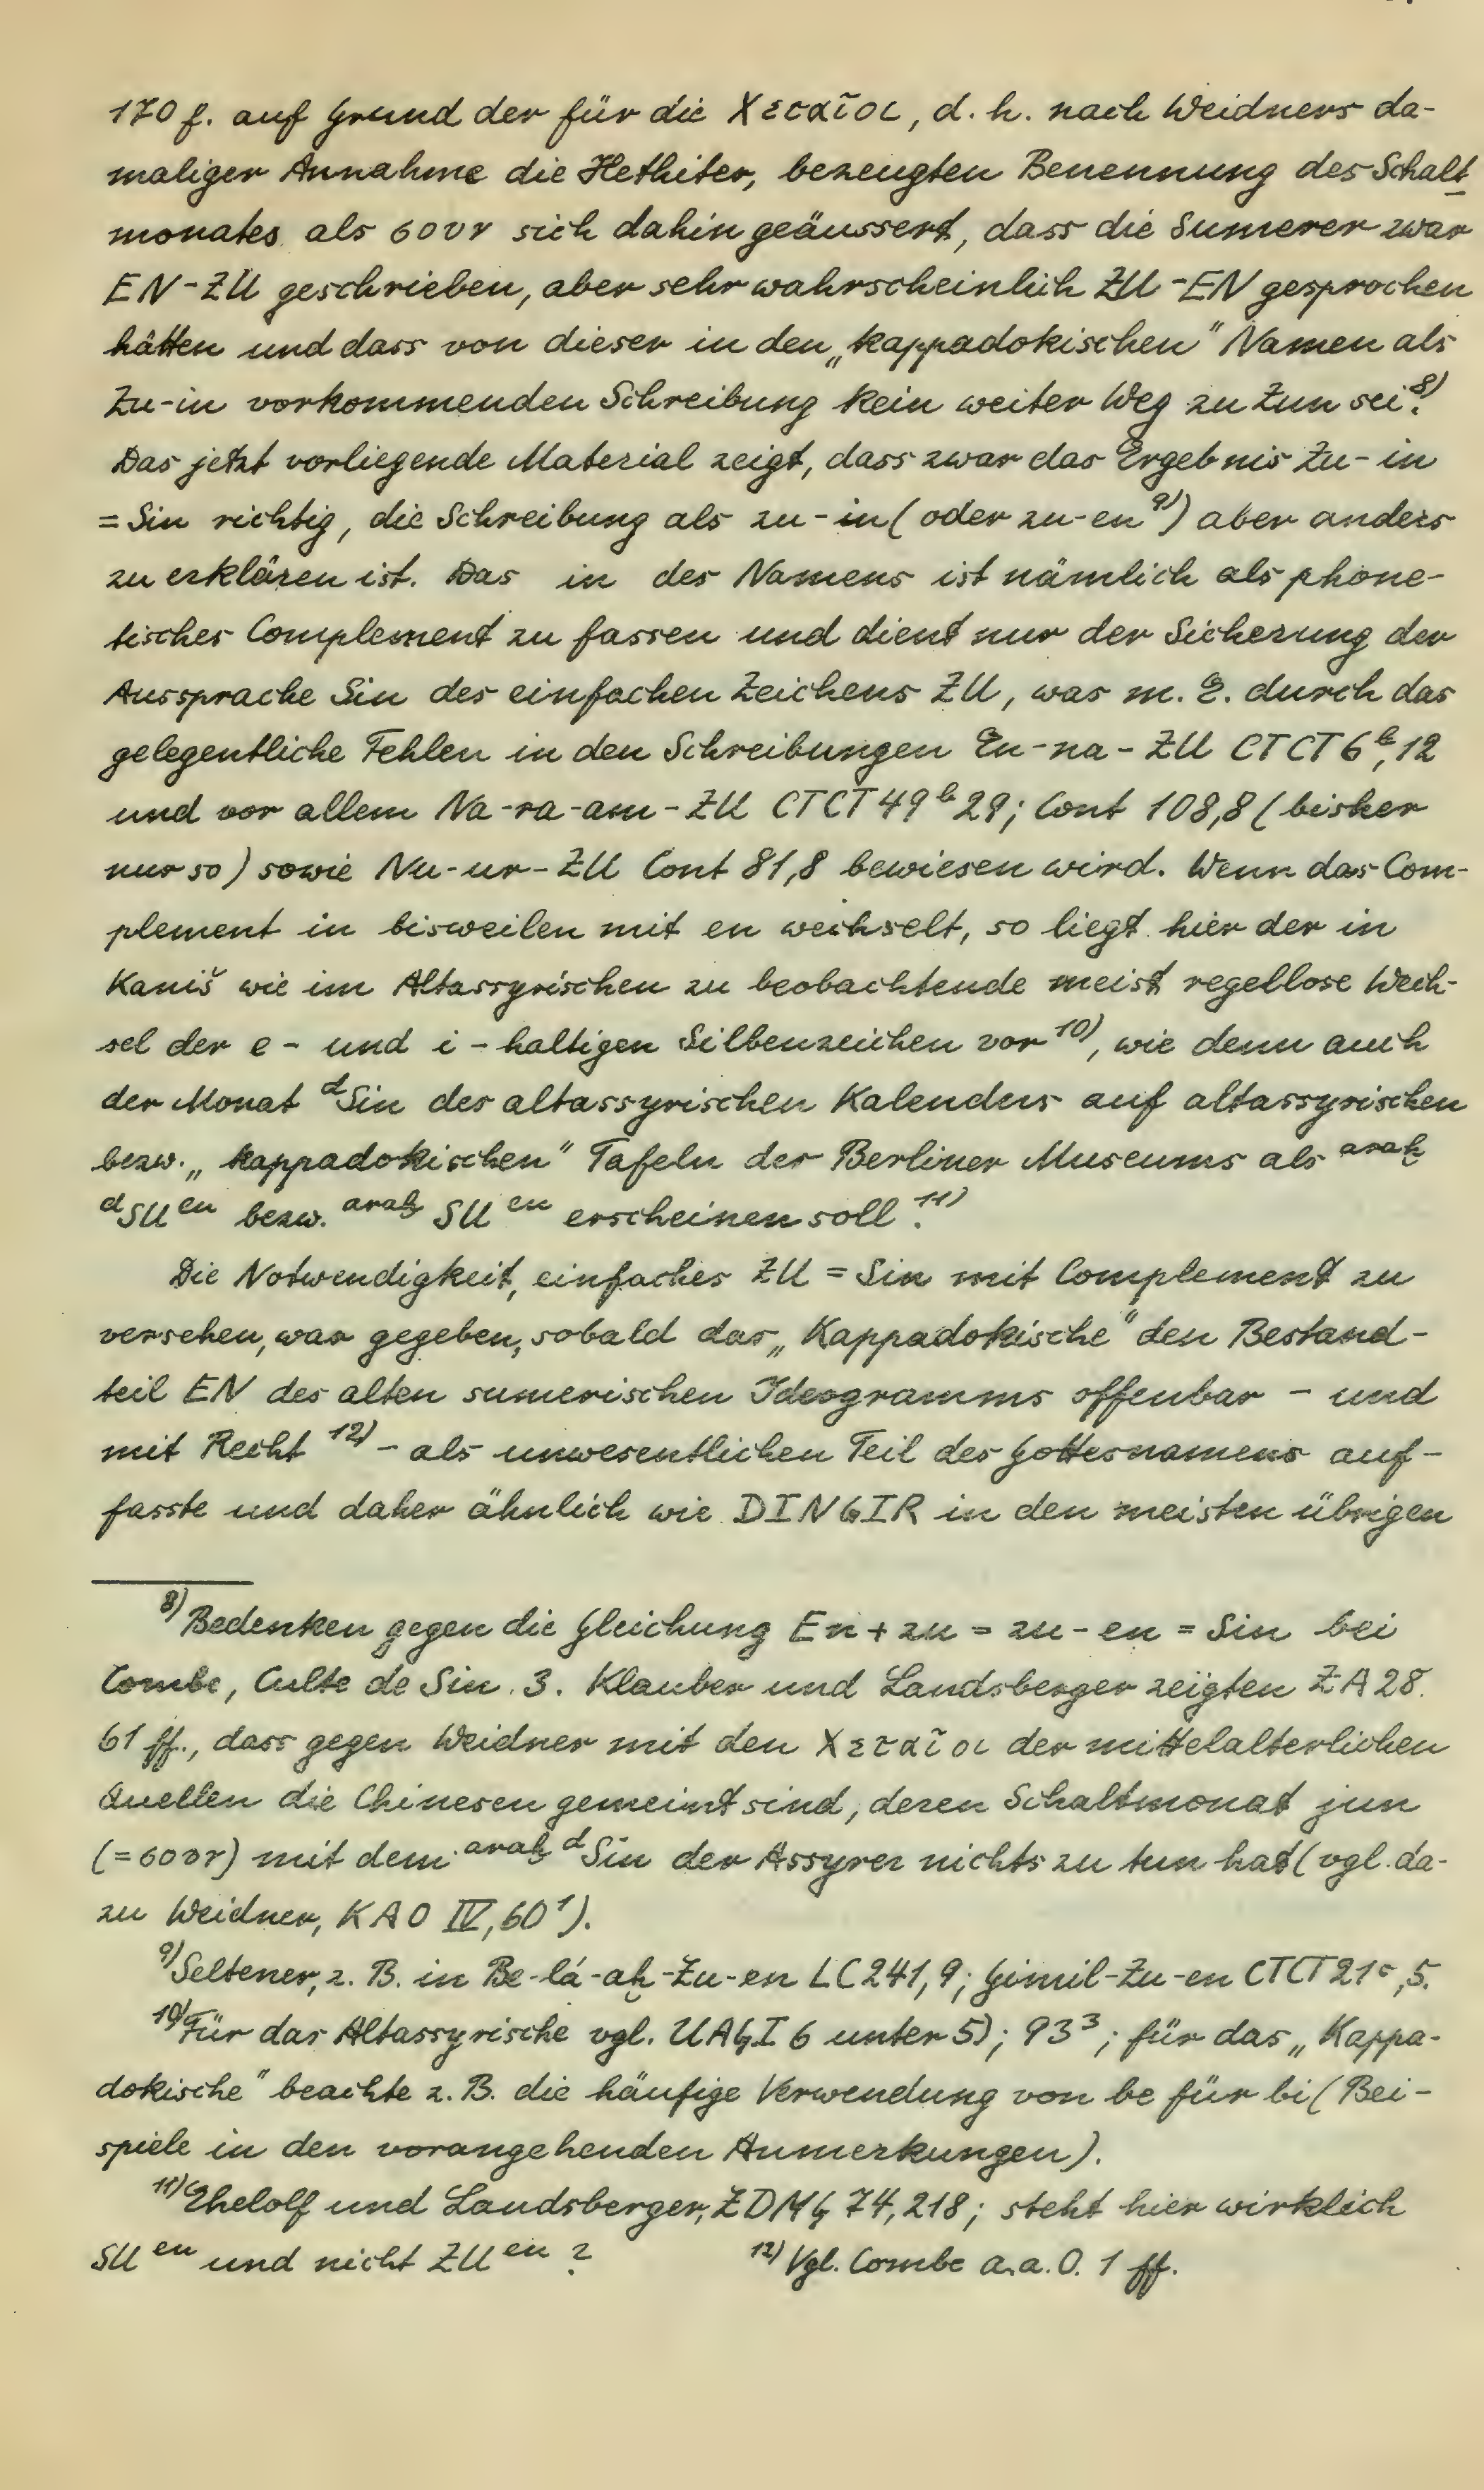 170 f. auf Grund der für die Χεταῖοι, d. h. nach Weidners da-
maliger Annahme die Hethiter, bezeugten Benennung des Schalt-
monates als σουν sich dahin geäussert, dass die Sumerer zwar
EN-ZU geschrieben, aber sehr wahrscheinlich ZU-EN gesprochen
hätten und dass von dieser in den „kappadokischen" Namen als
Zu-in vorkommenden Schreibung kein weiter Weg zu Zun sei.⁸⁾
Das jetzt vorliegende Material zeigt, dass zwar das Ergebnis Zu-in
= Sin richtig, die Schreibung als zu-in (oder zu-en⁹⁾) aber anders
zu erklären ist. Das in des Namens ist nämlich als phone-
tisches Complement zu fassen und dient nur der Sicherung der
Aussprache Sin des einfachen Zeichens ZU, was m. E. durch das
gelegentliche Fehlen in den Schreibungen En-na-ZU CTCT 6ᵇ,12
und vor allem Na-ra-am-ZU CTCT 49ᵇ 29; Cont 108,8 (bisher
nur so) sowie Nu-ur-ZU Cont 81,8 bewiesen wird. Wenn das Com-
plement in bisweilen mit en wechselt, so liegt hier der in
Kaniš wie im Altassyrischen zu beobachtende meist regellose Wech-
sel der e- und i-haltigen Silbenzeichen vor¹⁰⁾, wie denn auch
der Monat ᵈSin des altassyrischen Kalenders auf altassyrischen
bezw. „kappadokischen" Tafeln der Berliner Museums als ᵃʳᵃḫ
ᵈSUᵉⁿ bezw. ᵃʳᵃḫ SUᵉⁿ erscheinen soll.¹¹⁾
Die Notwendigkeit, einfaches ZU = Sin mit Complement zu
versehen, war gegeben, sobald das „Kappadokische" den Bestand-
teil EN des alten sumerischen Ideogramms offenbar - und
mit Recht¹²⁾ - als unwesentlichen Teil des Gottesnamens auf-
fasste und daher ähnlich wie DINGIR in den meisten übrigen
⁸⁾ Bedenken gegen die Gleichung En + zu = zu-en = Sin bei
Combe, Culte de Sin 3. Klauber und Landsberger zeigten ZA 28.
61 ff., dass gegen Weidner mit den Χεταῖοι der mittelalterlichen
Quellen die Chinesen gemeint sind, deren Schaltmonat jun
(= σουν) mit dem ᵃʳᵃḫ ᵈSin der Assyrer nichts zu tun hat (vgl. da-
zu Weidner, KAO IV, 60¹).
⁹⁾ Seltener, z. B. in Be-lá-aḫ-Zu-en LC 241,9; Gimil-Zu-en CTCT 21ᶜ,5.
¹⁰⁾ Für das Altassyrische vgl. UAG I 6 unter 5); 93³; für das „Kappa-
dokische" beachte z. B. die häufige Verwendung von be für bi (Bei-
spiele in den vorangehenden Anmerkungen).
¹¹⁾ Ehelolf und Landsberger, ZDMG 74, 218; steht hier wirklich
SUᵉⁿ und nicht ZUᵉⁿ? ¹²⁾ Vgl. Combe a.a.O. 1 ff.